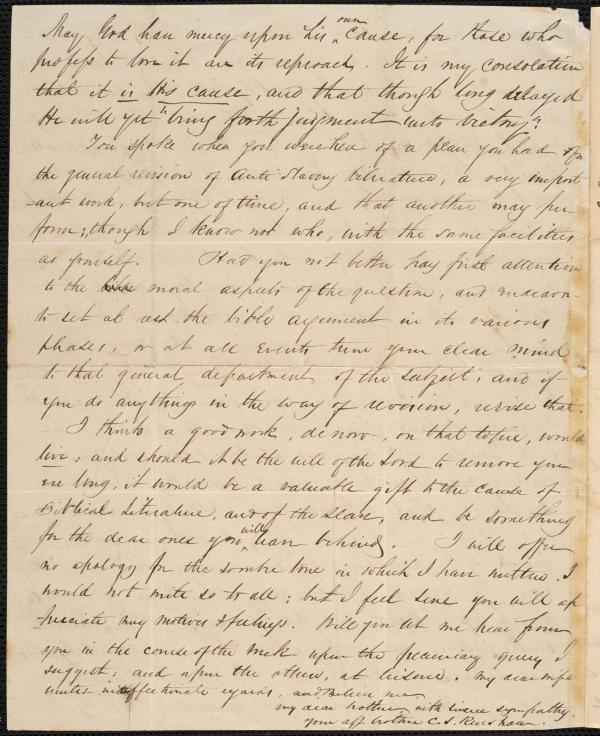 May God have mercy upon his own cause, for those who
profess to love it are its reproach. It is my consolation
that it is His cause, and that though long delayed
He will yet "bring forth Judgment unto victory".
You spoke when you were here of a plan you had for
the general revision of Anti Slavery literature, a very import
-ant work, but one of time, and that another may per-
form; though I know not who, with the same facilities
as yourself. Had you not better pay first attention
to the moral aspects of the question, and endeavor
to set at rest the bible argument in its various
phases, or at all events turn your clear mind
to that general department of the subject, and if
you do anything in the way of revision, revise that.
I think a good work, de novo, on that topic, would
live; and should it be the will of the Lord to remove you
ere long, it would be a valuable gift to the cause of
Biblical Literature, and of the slave, and be something
for the dear ones you will leave behind. I will offer
no apology for the sombre tone in which I have written. I
would not write so to all; but I feel sure you will ap
-preciate my motives & feelings. Will you let me hear from
you in the course of the week upon the pecuniary query I
suggest; and upon the others, at leisure. My dear wife
unites in affectionate regards, and believe me
my dear brother, with sincere sympathy
your aff brother C. S. Renshaw.